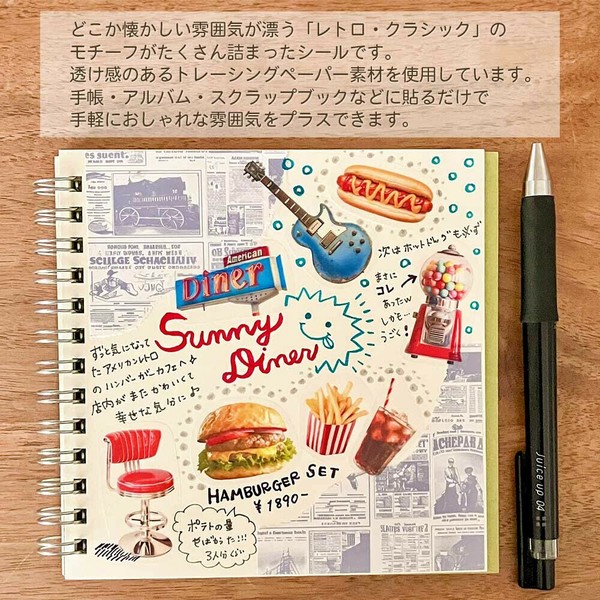 どこか懐かしい雰囲気が漂う「レトロ・クラシック」の
モチーフがたくさん詰まったシールです。
透け感のあるトレーシングペーパー素材を使用しています。
手帳・アルバム・スクラップブックなどに貼るだけで
手軽におしゃれな雰囲気をプラスできます。
American
Diner
次はホットドッグも必ず
まさに
コレ
あったw
しかも…
うごく!
Sunny
Diner
ずっと気になって
たアメリカンレトロ
のハンバーガーカフェへ
店内がまたかわいくて
幸せな気分に
HAMBURGER SET
¥1890-
ポテトの量
やばかった!!!
3人分くらい
Juice up 04